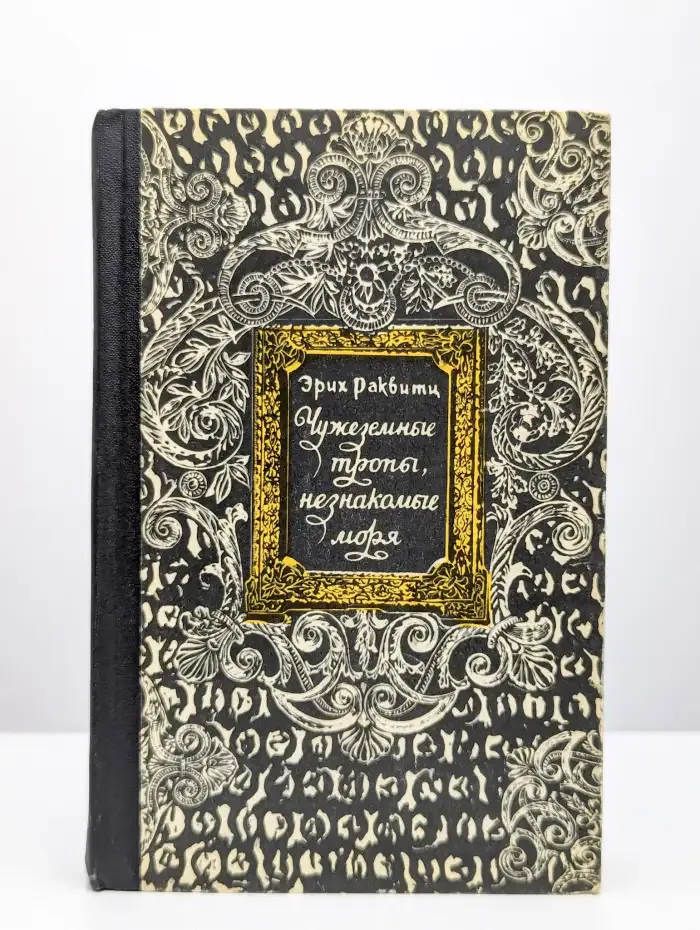 Эрих Раквитц
Чужеземные
тропы,
незнакомые
моря